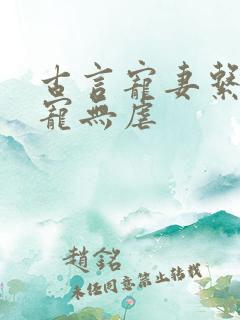 古言寵妻繫
寵無虐
趙銘
未经同意禁止转载